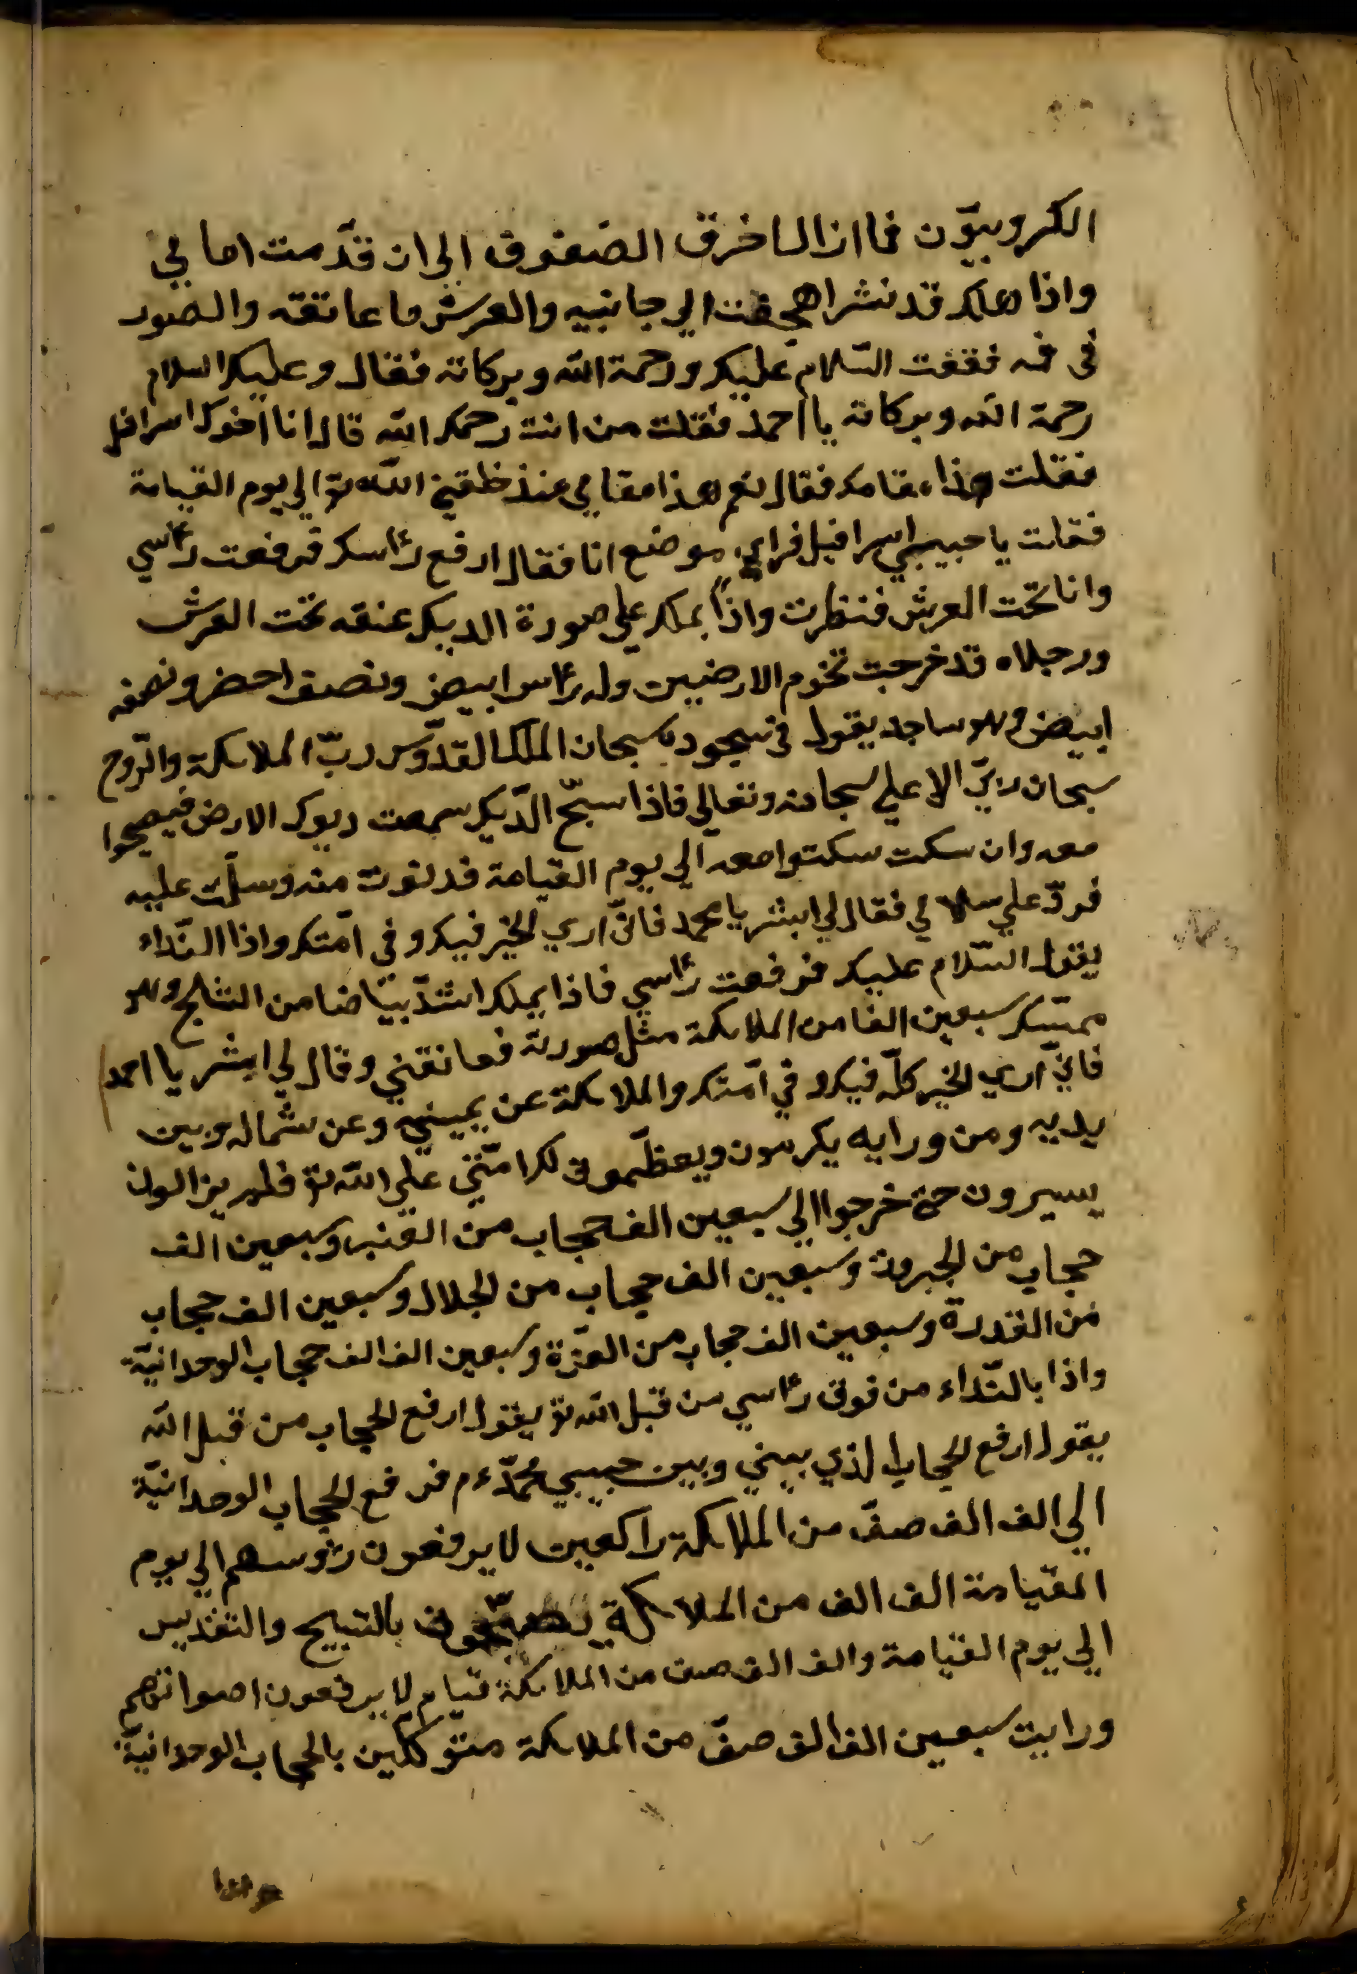 الكروبيّون فما ازال اخرق الصفوف الي ان قدّمت امامي
واذا بملك قد نشر اجنحت الي جانبيه والعرش ما عاتقه والصور
في فمه فقفت السّلام عليك ورحمة الله وبركاته فقال وعليك السلام
رحمة الله وبركاته يا احمد فقلت من انت رحمك الله قال انا اخوك اسرافيل
فقلت هذا مقامك فقال نعم هذا مقامي منذ خلقني الله تع الي يوم القيامة
فقلت يا حبيبي اسرافيل فراي موضع انا فقال ارفع رأسك فرفعت رأسي
وانا تحت العرش فنظرت واذا بملك علي صورة الديك عنقه تحت العرش
ورجلاه قد خرجت تخوم الارضيين وله رأس ابيض ونصف احضر ونصفه
ابيض وهو ساجد يقول في سجوده سبحان الملك القدّوس ربّ الملائكة والرّوح
سبحان ربيّ الاعلي سبحانه وتعالي فاذا سبّح الدّيك سمعت ديوك الارض فيصيحوا
معه وان سكت سكتوا معه الي يوم القيامة فدنوت منه وسلّمت عليه
فردّ علي سلامي فقال لي ابشر يا محمد فانّي اري الخير فيك وفي امّتك واذا النّداء
يقول السّلام عليك فرفعت رأسي فاذا بملك اشدّ بيّاضا من الثلج وهو
ممسّك سبعين الفا من الملائكة مثل صورته فعانقني وقال لي ابشر يا احمد
فانّي اري الخير كلّه فيك وفي امّتك والملائكة عن يميني وعن شماله وبين
يديه ومن ورايه يكرمون ويعظّموني لكرامتّي علي الله تع فلم يزالون
يسيرون حتي خرجوا الي سبعين الف حجاب من العنبر وسبعين الف
حجاب من الجبروة وسبعين الف حجاب من الجلال وسبعين الف حجاب
من القدرة وسبعين الف حجاب من العزّة وسبعين الف الف حجاب الوحدانيّة
واذا بالنّداء من فوق رأسي من قبل الله تع يقول ارفع الحجاب من قبل الله
يقول ارفع الحجاب الذي بيني وبين حبيبي محمّد عم فرفع الحجاب الوحدانيّة
الي الف الف صفّ من الملائكة راكعين لا يرفعون رؤسهم الي يوم
القيامة الف الف من الملائكة يصيّحون بالتبيح والتقديس
الي يوم القيامة والف الف صف من الملائكة قيام لا يرفعون اصواتهم
ورايت سبعين الف الف صفّ من الملائكة متوّكلين بالحجاب الوحدانيّة